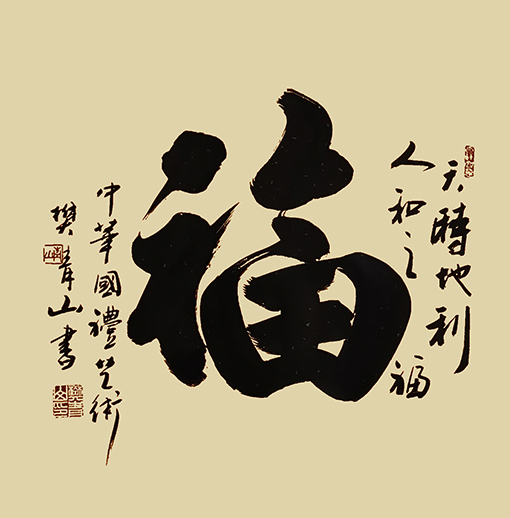 天時地利
人和之福
福
中華國禮艺術
樊青山書